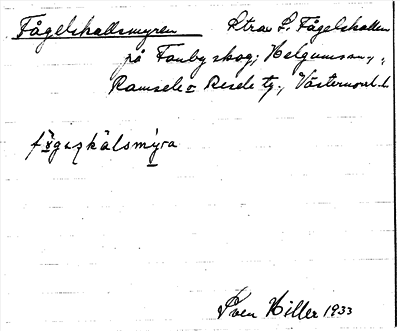 Fågelskallsmyren Strax S. Fågelskallen
på Fanby skog; Helgumssn.,
Ramsele o Resele tg., Västernorrl. l.
fŏgəskälsmyra
Sven Hiller 1933